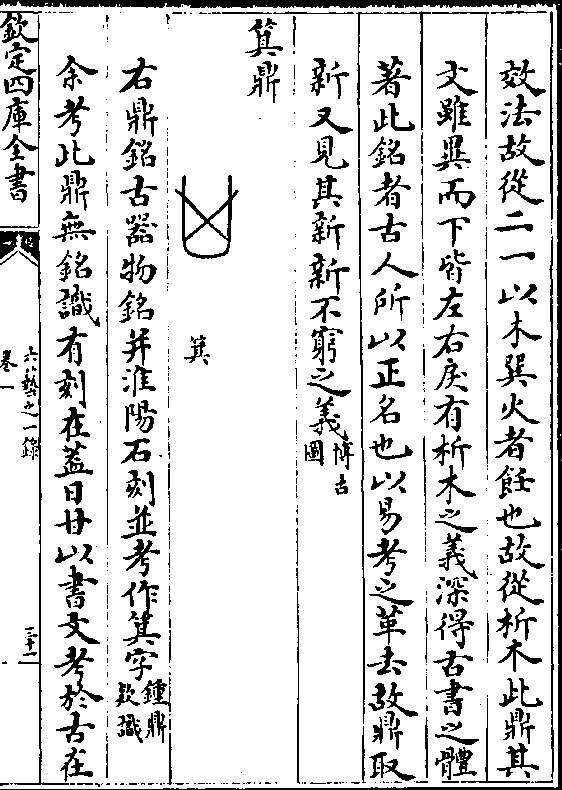 效法故從二一以木巽火者飪也故從析木此鼎其
文雖異而下皆左右戾有析木之義深得古書之體
著此銘者古人所以正名也以易考之革去故鼎取
新又見其新新不窮之義博古圖
箕鼎
箕
右鼎銘古器物銘并淮陽石刻並考作箕字鍾鼎欵識
余考此鼎無銘識有刻在蓋曰甘以書文考於古在
欽定四庫全書
六藝之一録
卷一
三十一